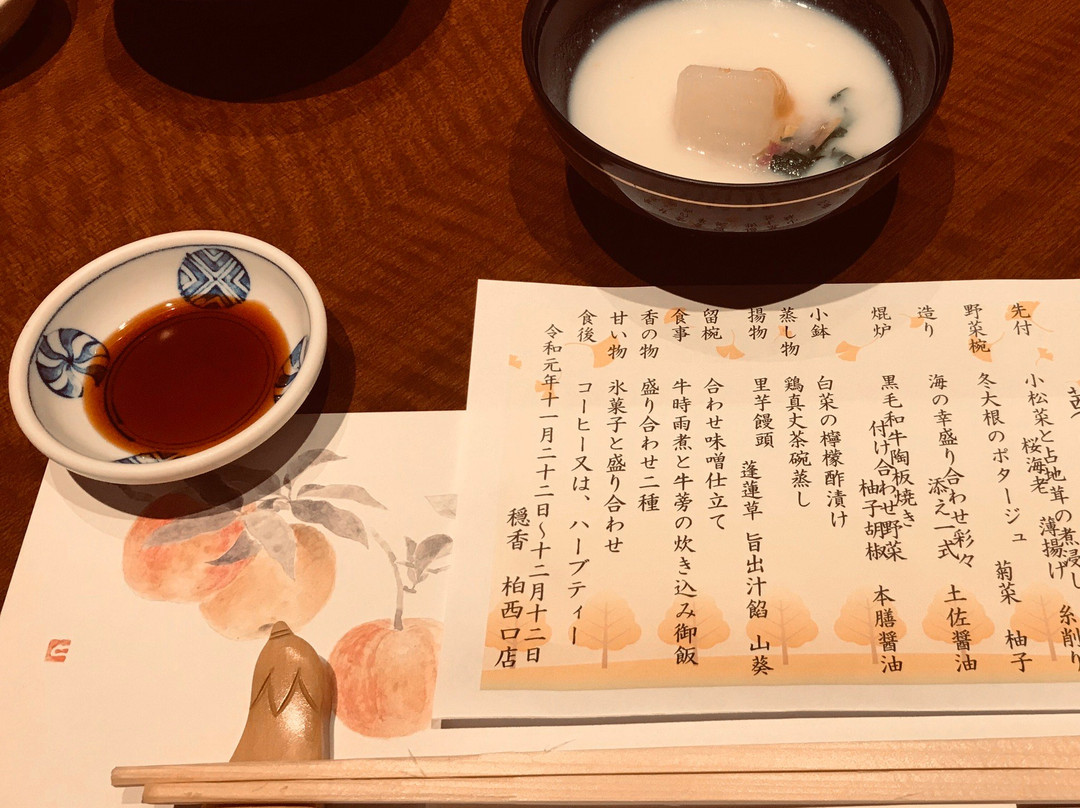 先付
小松菜と占地茸の煮浸し
桜海老 薄揚げ 糸削り
野菜椀
冬大根のポタージュ 菊菜 柚子
造り
海の幸盛り合わせ彩々
添え一式 土佐醤油
焜炉
黒毛和牛陶板焼き
付け合わせ野菜
柚子胡椒 本膳醤油
小鉢
白菜の檸檬酢漬け
蒸し物
鶏真丈茶碗蒸し
揚物
里芋饅頭 蓬蓮草 旨出汁餡 山葵
留椀
合わせ味噌仕立て
食事
牛時雨煮と牛蒡の炊き込み御飯
香の物
盛り合わせ二種
甘い物
氷菓子と盛り合わせ
食後
コーヒー又は、ハーブティー
令和元年十一月二十二日～十二月十二日
穏香 柏西口店